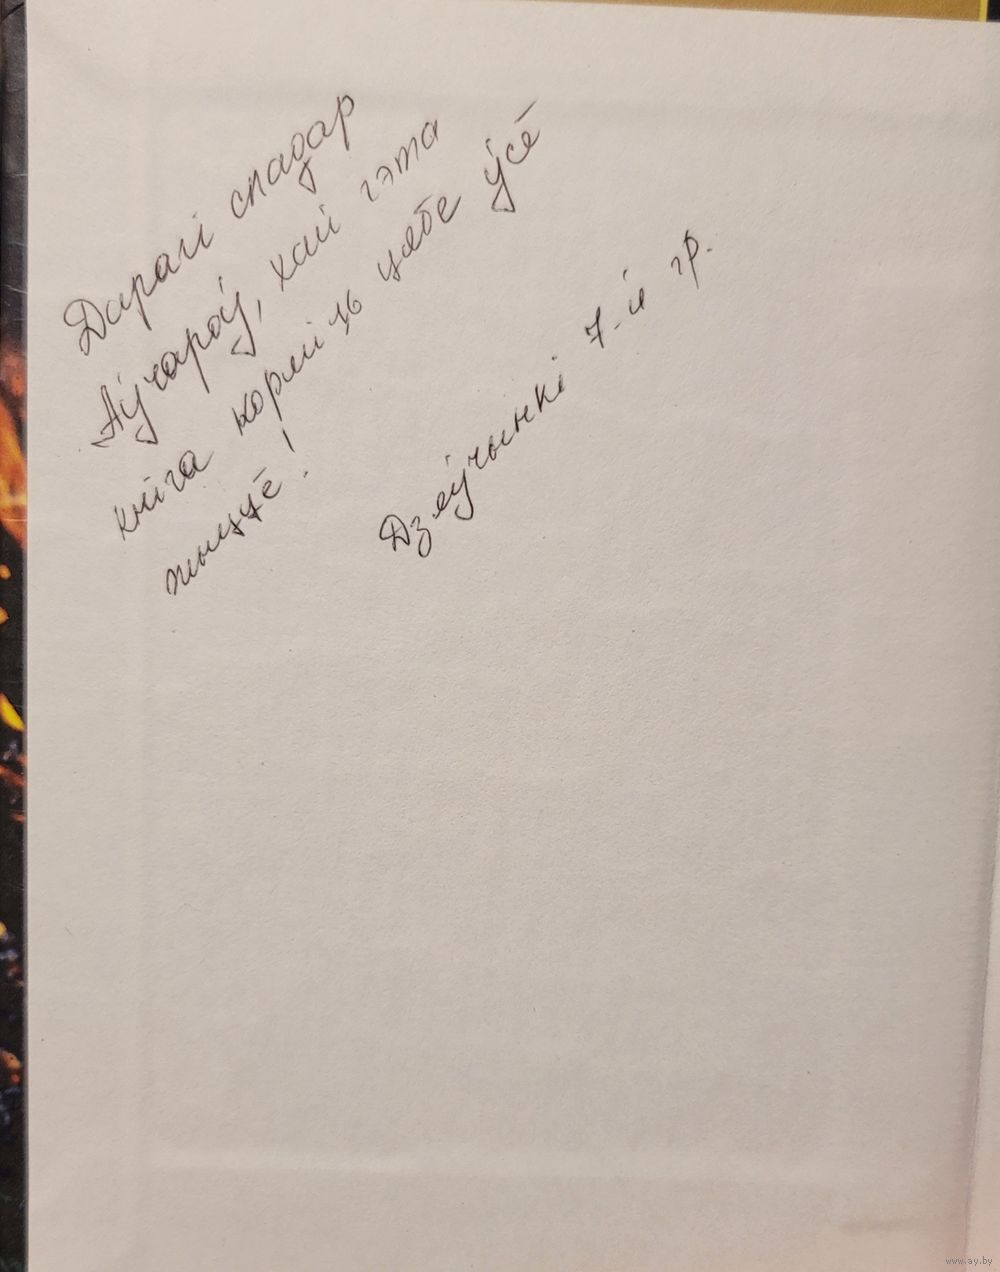 Дарагі спадар
Аўчароў, хай гэта
кніга корміць цябе ўсё
жыццё!
Дзеўчынкі 7-й гр.
www.ay.by